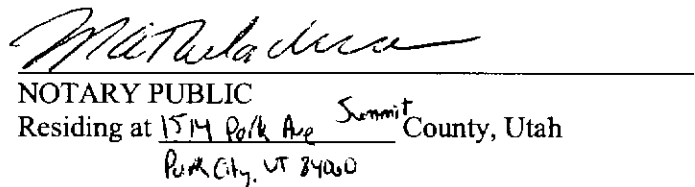 NOTARY PUBLIC
Residing at 1514 Park Ave Summit County, Utah
Park City, UT 84060